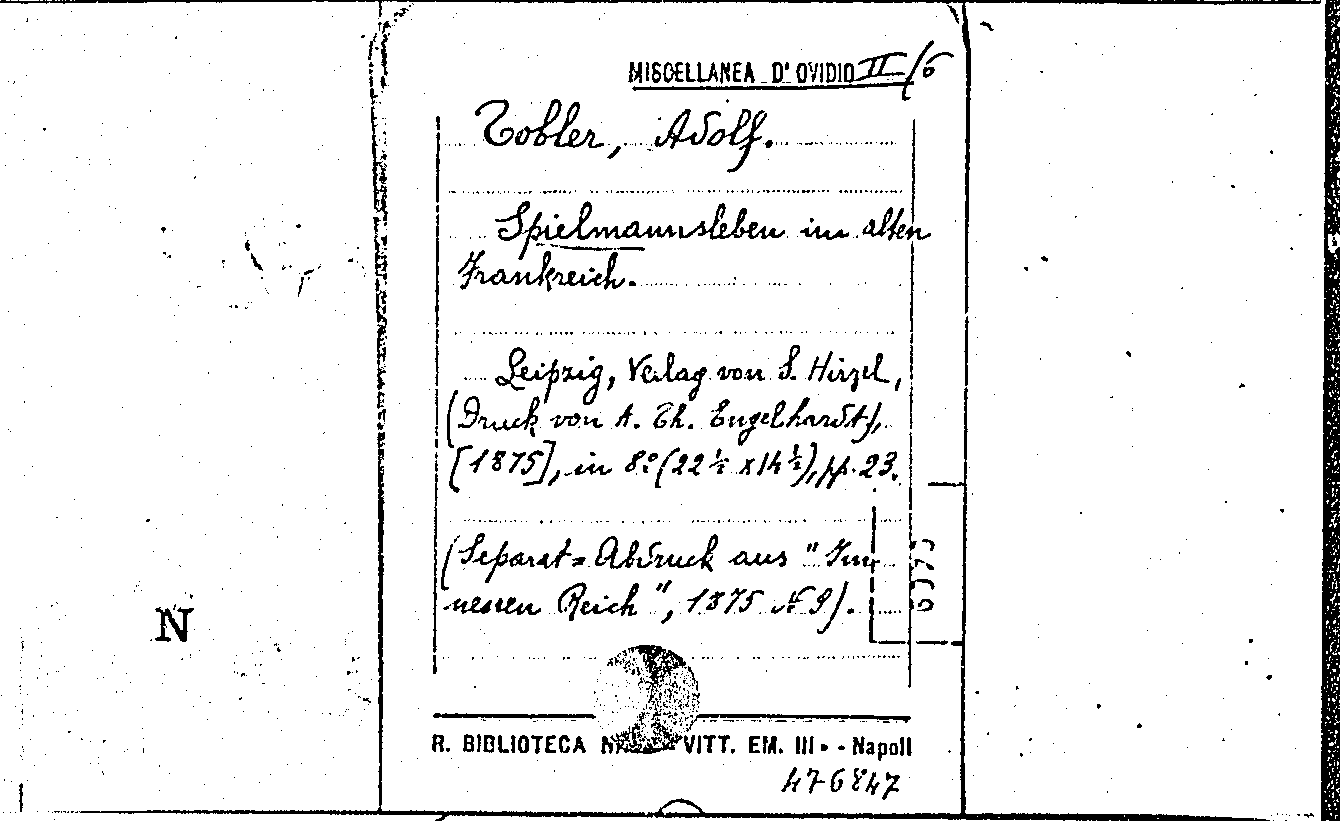 MISCELLANEA D'OVIDIO II/6
Tobler, Adolf.
Spielmannsleben im alten
Frankreich.
Leipzig, Verlag von S. Hirzel,
(Druck von A. Th. Engelhardt),
[1875], in 8º (22½ x 14½), pp. 23.
(Separat=Abdruck aus "Im
neuen Reich", 1875 Nº 9).
N
R. BIBLIOTECA VITT. EM. III - Napoli
476847